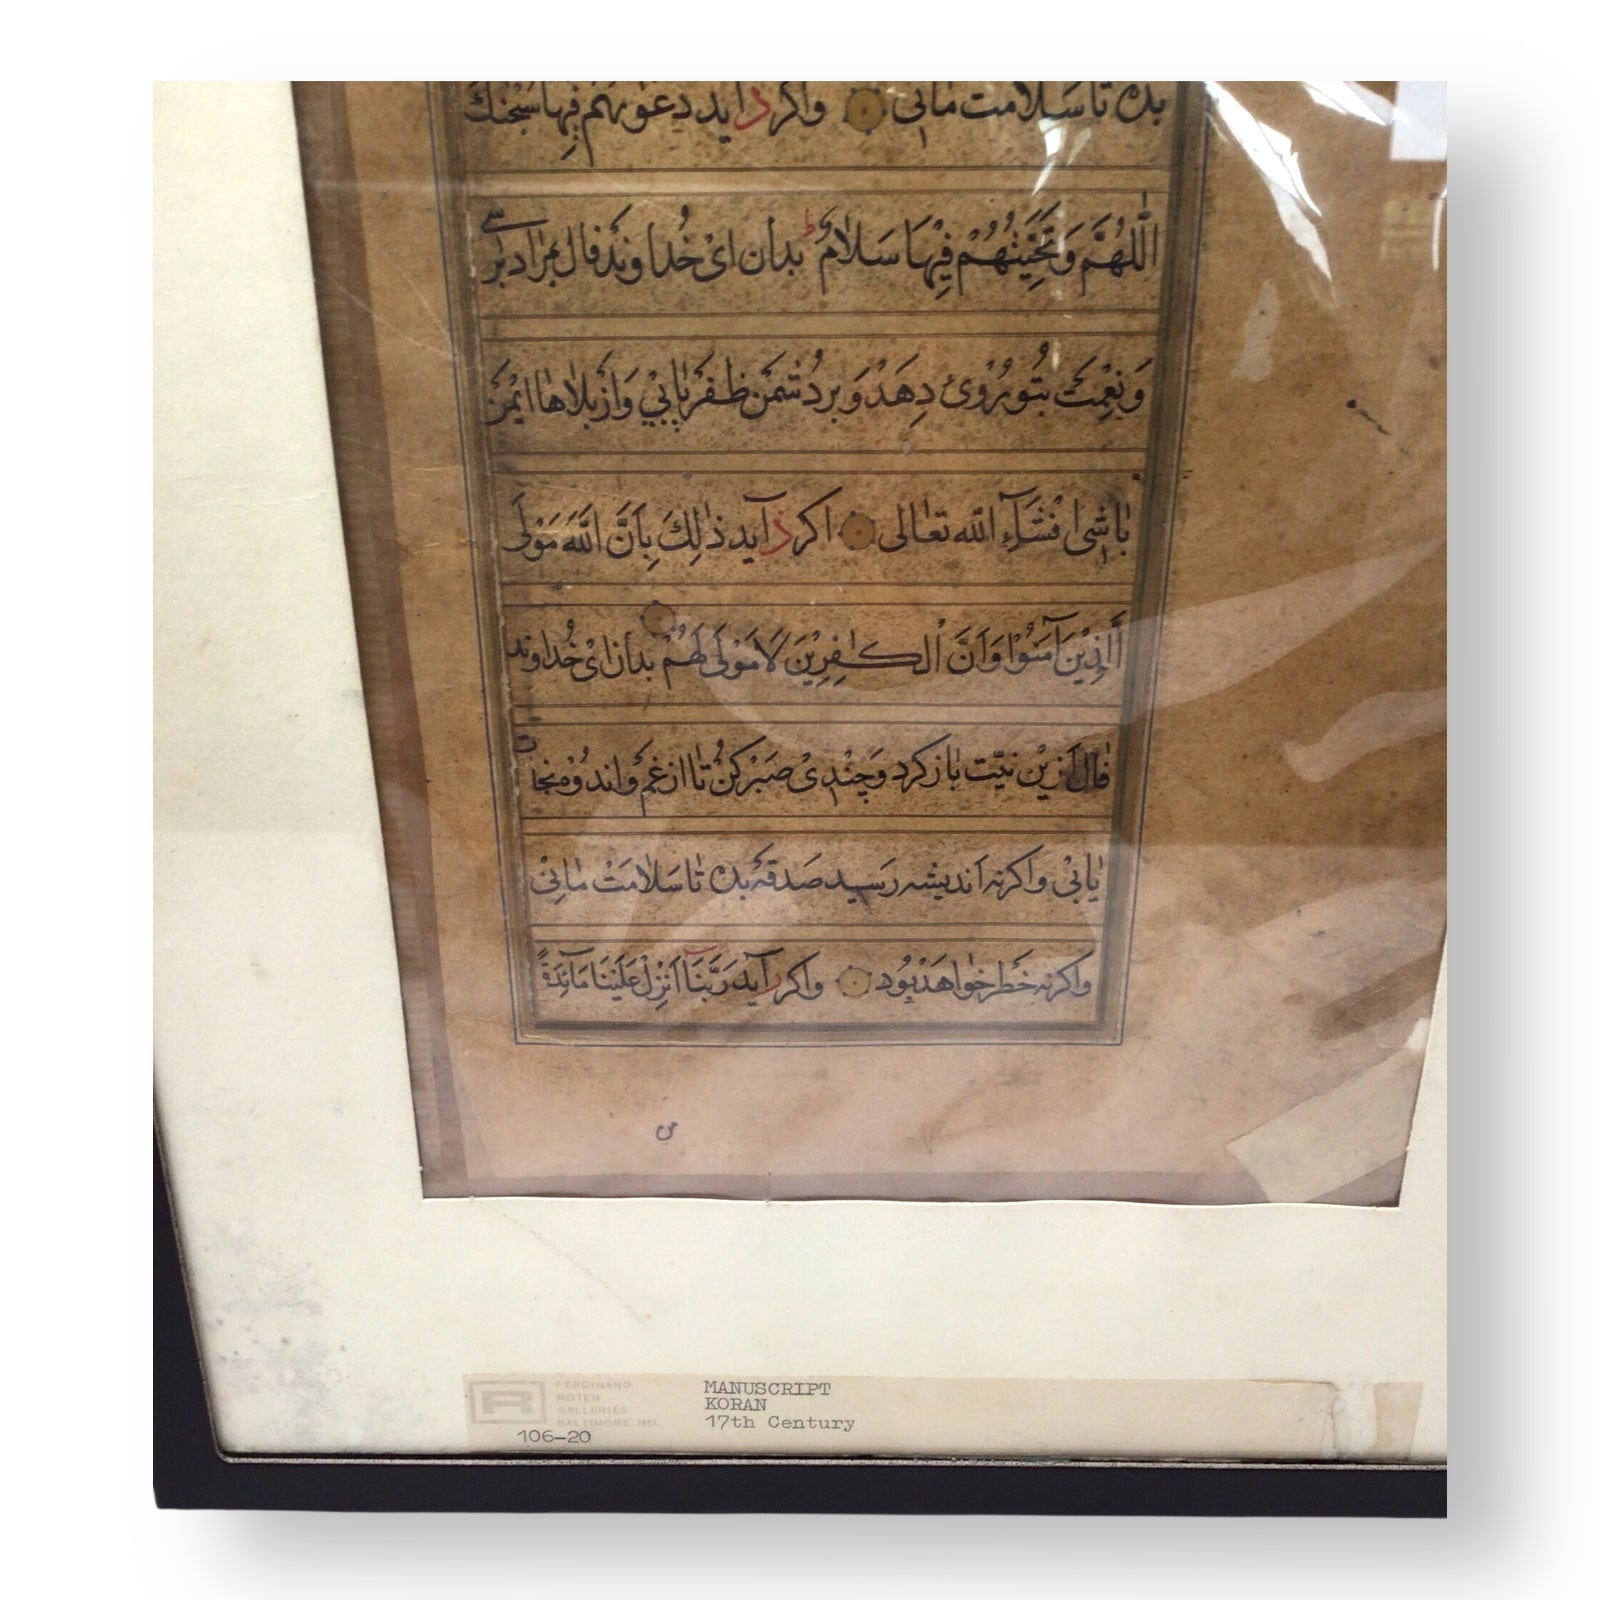 بده تا سلامت مانی واکر د آید دعوٰیهم فیها سبحٰنك
اللّٰهُمَّ وَتَحِيَّتُهُمْ فِيْهَا سَلَامٌ بدان ایْ خُداوند فال مراد
وَنِعْمَت بتُو رُوْی دِهَدْ وَ بر دُشمَن ظفَر یابیْ وَ اَزْ بَلاها ایْمَن
باشی انْشَآءِ اللّٰه تعالی اکر د آید ذٰلِكَ بِاَنَّ اللّٰهَ مَوْلَی
الَّذِیْنَ اٰمَنُوْا وَاَنَّ الْكٰفِرِیْنَ لَا مَوْلَی لَهُمْ بدان ایْ خُداوند
فال اَزیْن نیّت باز کرد وَ چَنْدیْ صَبْر کُنْ تا از غم و اندوُه نجات
یابیْ واکرنه اَندیشه رَسید صَدقَه بده تا سَلامَتْ مانیْ
واکرنه خَطر خواهَدْ بُود واکر د آید رَبَّنَا اَنْزِلْ عَلَیْنَا مَآئِدَةً
FERDINAND
ROTEN
GALLERIES
BALTIMORE, MD.
106-20
MANUSCRIPT
KORAN
17th Century